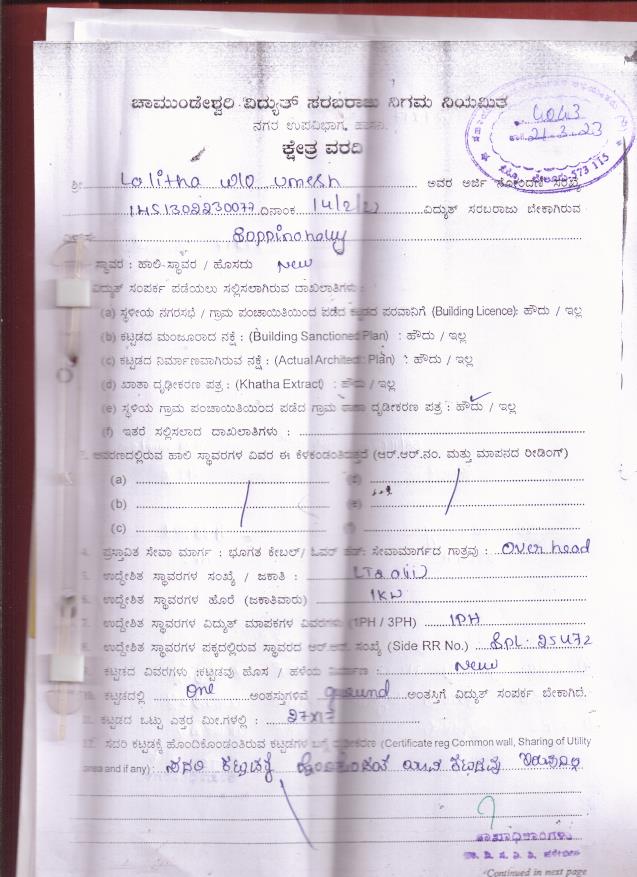 ಚಾಮುಂಡೇಶ್ವರಿ ವಿದ್ಯುತ್ ಸರಬರಾಜು ನಿಗಮ ನಿಯಮಿತ
ನಗರ ಉಪವಿಭಾಗ, ಹಾಸನ.
4043
21-3-23
573 115
ಕ್ಷೇತ್ರ ವರದಿ
ಶ್ರೀ Lalitha w/o Umesh ಅವರ ಅರ್ಜಿ ನೋಂದಣಿ ಸಂಖ್ಯೆ
ದಿನಾಂಕ ವಿದ್ಯುತ್ ಸರಬರಾಜು ಬೇಕಾಗಿರುವ
ಸ್ಥಾವರ : ಹಾಲಿ-ಸ್ಥಾವರ / ಹೊಸದು New
ವಿದ್ಯುತ್ ಸಂಪರ್ಕ ಪಡೆಯಲು ಸಲ್ಲಿಸಲಾಗಿರುವ ದಾಖಲಾತಿಗಳು :
(a) ಸ್ಥಳೀಯ ನಗರಸಭೆ / ಗ್ರಾಮ ಪಂಚಾಯಿತಿಯಿಂದ ಪಡೆದ ಕಟ್ಟಡದ ಪರವಾನಿಗೆ (Building Licence): ಹೌದು / ಇಲ್ಲ
(b) ಕಟ್ಟಡದ ಮಂಜೂರಾದ ನಕ್ಷೆ : (Building Sanctioned Plan) : ಹೌದು / ಇಲ್ಲ
(c) ಕಟ್ಟಡದ ನಿರ್ಮಾಣವಾಗಿರುವ ನಕ್ಷೆ : (Actual Architect Plan) : ಹೌದು / ಇಲ್ಲ
(d) ಖಾತಾ ದೃಢೀಕರಣ ಪತ್ರ : (Khatha Extract) : ಹೌದು / ಇಲ್ಲ
(e) ಸ್ಥಳಿಯ ಗ್ರಾಮ ಪಂಚಾಯಿತಿಯಿಂದ ಪಡೆದ ಗ್ರಾಮ ಠಾಣಾ ದೃಡೀಕರಣ ಪತ್ರ : ಹೌದು / ಇಲ್ಲ
(f) ಇತರೆ ಸಲ್ಲಿಸಲಾದ ದಾಖಲಾತಿಗಳು :
3. ಆವರಣದಲ್ಲಿರುವ ಹಾಲಿ ಸ್ಥಾವರಗಳ ವಿವರ ಈ ಕೆಳಕಂಡಂತಿರುತ್ತದೆ (ಆರ್.ಆರ್.ನಂ. ಮತ್ತು ಮಾಪನದ ರೀಡಿಂಗ್)
(a) (d)
(b) (e)
(c)
4. ಪ್ರಸ್ತಾವಿತ ಸೇವಾ ಮಾರ್ಗ : ಭೂಗತ ಕೇಬಲ್/ ಓವರ್ ಹೆಡ್: ಸೇವಾಮಾರ್ಗದ ಗಾತ್ರವು : Over head
5. ಉದ್ದೇಶಿತ ಸ್ಥಾವರಗಳ ಸಂಖ್ಯೆ / ಜಕಾತಿ :
6. ಉದ್ದೇಶಿತ ಸ್ಥಾವರಗಳ ಹೊರೆ (ಜಕಾತಿವಾರು) : 1KW
7. ಉದ್ದೇಶಿತ ಸ್ಥಾವರಗಳ ವಿದ್ಯುತ್ ಮಾಪಕಗಳ ವಿವರಗಳು (1PH / 3PH) : 1PH
8. ಉದ್ದೇಶಿತ ಸ್ಥಾವರಗಳ ಪಕ್ಕದಲ್ಲಿರುವ ಸ್ಥಾವರದ ಆರ್.ಆರ್. ಸಂಖ್ಯೆ (Side RR No.) BPL. 25472
9. ಕಟ್ಟಡದ ವಿವರಗಳು :ಕಟ್ಟಡವು ಹೊಸ / ಹಳೆಯ ನಿರ್ಮಾಣ : New
10. ಕಟ್ಟಡದಲ್ಲಿ One ಅಂತಸ್ತುಗಳಿವೆ ground ಅಂತಸ್ತಿಗೆ ವಿದ್ಯುತ್ ಸಂಪರ್ಕ ಬೇಕಾಗಿದೆ.
11. ಕಟ್ಟಡದ ಒಟ್ಟು ಎತ್ತರ ಮೀ.ಗಳಲ್ಲಿ : 27x17
12. ಸದರಿ ಕಟ್ಟಡಕ್ಕೆ ಹೊಂದಿಕೊಂಡಂತಿರುವ ಕಟ್ಟಡಗಳ ಬಗ್ಗೆ ದೃಢೀಕರಣ (Certificate reg Common wall, Sharing of Utility
area and if any) : ಸದರಿ ಕಟ್ಟಡಕ್ಕೆ ಹೊಂದಿಕೊಂಡಂತೆ ಯಾವ ಕಟ್ಟಡವು ಇರುವುದಿಲ್ಲ
Continued in next page